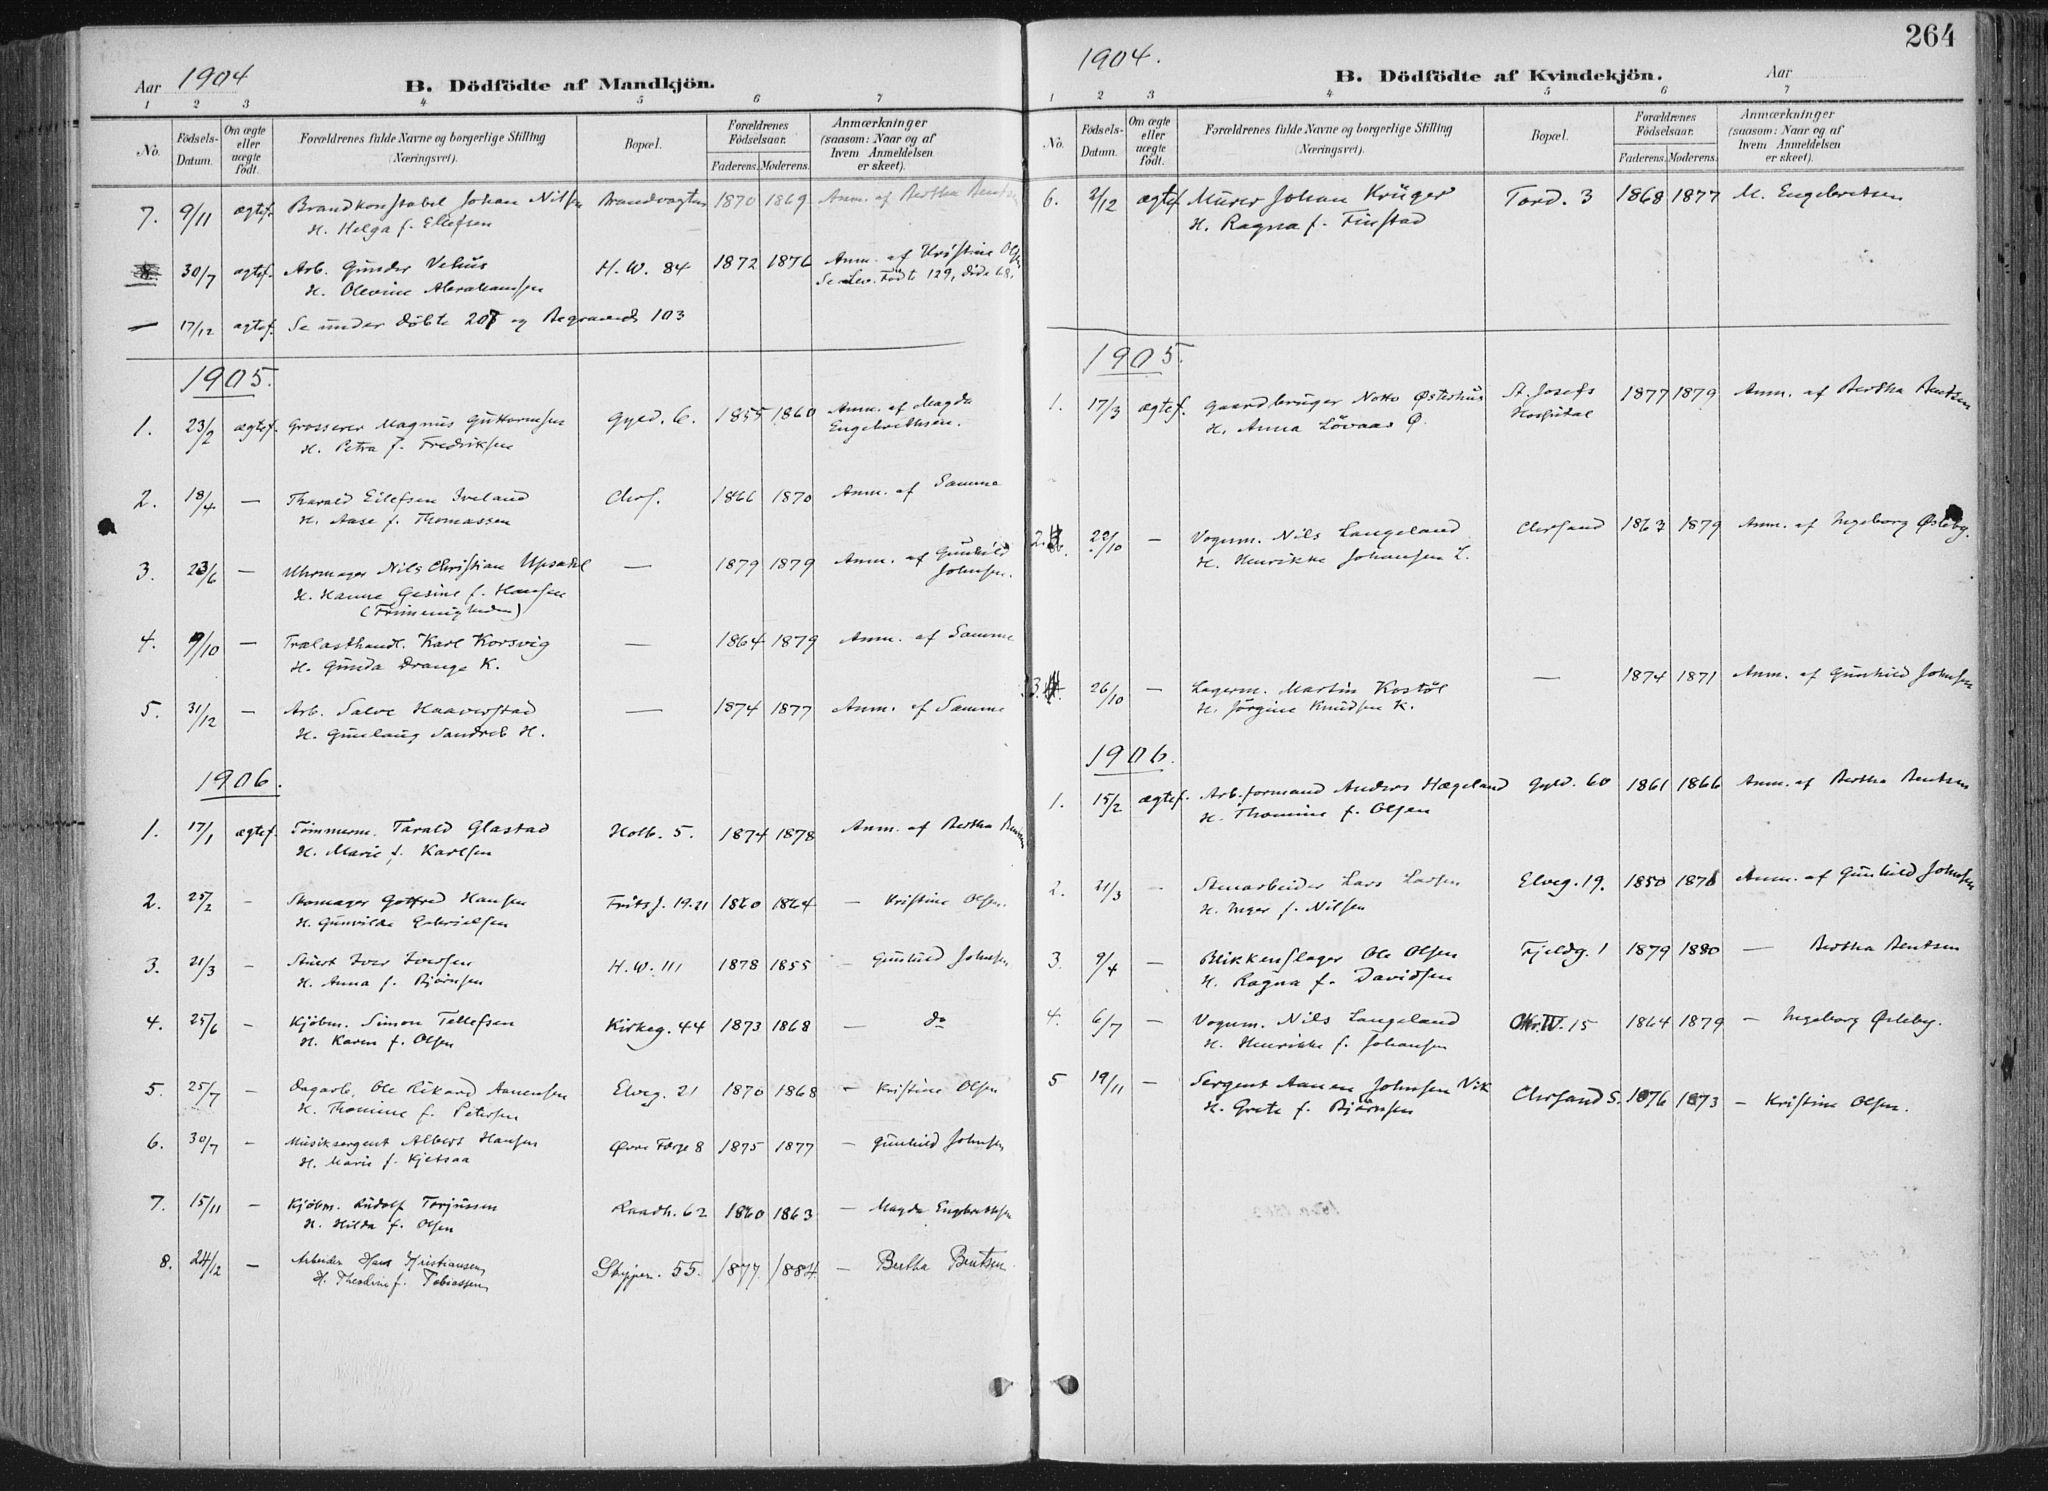 Aar 1904 B. Dödfödte af Mandkjön.
1 2 3 4 5 6 7
No. Födsels-Datum. Om ægte eller uægte födt. Forældrenes fulde Navne og borgerlige Stilling (Næringsvei). Bopæl. Forældrenes Födselsaar. Faderens. Moderens. Anmærkninger (saasom: Naar og af hvem Anmeldelsen er skeet).
7. 9/11 ægtef. Brandkonstabel Johan Nilsen Brandvagten 1870 1869 Anm. af Bertha Bentsen
H. Helga f. Ellefsen
8. 30/7 ægtef. Arb. Gunder Vehus H. W. 84 1872 1876 Anm. af Kristine Olsen
H. Olevine Abrahamsen Se Lev. Födte 129, döde 68.
— 17/12 ægtef. Se under döbte 207 og Begravede 103
1905.
1. 23/2 ægtef. Grosserer Magnus Guttormsen Gyld. 6. 1855 1860 Anm. af Magda
H. Petra f. Fredriksen Engebrethsen.
2. 18/4 — Tharald Eilefsen Iveland Chrs. 1866 1870 Anm. af Samme
H. Aase f. Thomassen
3. 23/6 — Uhrmager Nils Christian Upsadel — 1879 1879 Anm. af Gunhild
H. Hanne Gesine f. Hansen Johnsen.
(Frimenigheden)
4. 9/10 — Trælasthandl. Karl Korsvig — 1864 1879 Anm. af Samme
H. Gunda Drange K.
5. 31/12 — Arb. Salve Haaverstad — 1874 1877 Anm. af Samme
H. Gunlaug Sandreb H.
1906.
1. 17/1 ægtef. Tömmerm. Tarald Glastad Holb. 5. 1874 1878 Anm. af Bertha Bentsen
H. Marie f. Karlsen
2. 25/2 - Skomager Gotfred Hansen Frits J. 19.21 1860 1864 — Kristine Olsen.
H. Gunvilda Gabrielsen
3. 21/3 - Stuert Iver Iversen H. W. 111 1878 1855 — Gunhild Johnsen
H. Anna f. Bjørnsen
4. 25/6 - Kjöbm. Simon Tellefsen Kirkeg. 44 1873 1868 — do
H. Karen f. Olsen
5. 25/7 — Dagarb. Ole Rikard Aanensen Elveg. 21 1870 1868 — Kristine Olsen
H. Thomine f. Petersen
6. 30/7 — Musiksergent Albert Hansen Øvre Færge 8 1875 1877 — Gunhild Johnsen
H. Marie f. Kjetsaa
7. 15/11 — Kjöbm. Rudolf Torjussen Raadh. 62 1860 1863 — Magda Engbrethsen
H. Hilda f. Olsen
8. 24/12 — Arbeider Hans Kristiansen Skipper. 55. 1877 1884 — Bertha Bentsen
H. Theoline f. Tobiassen
264
1904. B. Dödfödte af Kvindekjön. Aar
1 2 3 4 5 6 7
No. Födsels-Datum. Om ægte eller uægte födt. Forældrenes fulde Navne og borgerlige Stilling (Næringsvei). Bopæl. Forældrenes Födselsaar. Faderens. Moderens. Anmærkninger (saasom: Naar og af hvem Anmeldelsen er skeet).
6. 2/12 ægtef. Murer Johan Krüger Tord. 3 1868 1877 M. Engebretsen
H. Ragna f. Finstad
1905.
1. 17/3 ægtef. Gaardbruger Notto Østerhus St. Josefs 1877 1879 Anm. af Bertha Bentsen
H. Anna Lövaas Ø. Hospital
2. 29/10 — Vognm. Nils Langeland Chrsand 1863 1879 Anm. af Ingeborg Østeby.
H. Henrikke Johansen L.
3. 26/10 — Lagerm. Martin Kostöl — 1874 1871 Anm. af Gunhild Johnsen
H. Jörgine Knudsen K.
1906.
1. 15/2 ægtef. Arb.formand Anders Hægeland Gyld. 60 1861 1866 Anm. af Bertha Bentsen
H. Thomine f. Olsen
2. 21/3 — Stenarbeider Lars Larsen Elveg. 19. 1850 1871 Anm. af Gunhild Johnsen
H. Inger f. Nilsen
3. 9/4 — Blikkenslager Ole Olsen Fjeldg. 1 1879 1880 — Bertha Bentsen
H. Ragna f. Davidsen
4. 6/7 — Vognm. Nils Langeland Chr.IV. 15 1864 1879 — Ingeborg Østeby.
H. Henrikke f. Johansen
5 19/11 — Sergent Aanen Johnsen Vik Chrsand S. 1876 1873 — Kristine Olsen.
H. Grete f. Bjørnsen